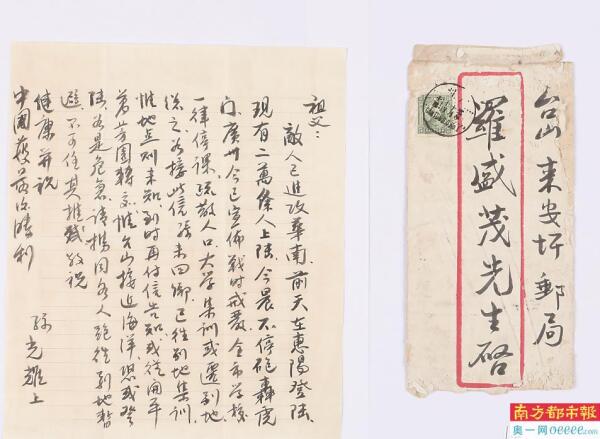 祖父：
敵人已進攻華南，前天在惠陽登陸，
現有二萬餘人上陸，今晨不停砲轟虎
門，廣州今已宣佈戰時戒嚴，全市學校
一律停課，疏散人口，大学集訓或遷別地
從之，如接此信孫未回鄉，已往別地集訓
惟地点則未知，到時再付信告知，或從開平
惟台山接近海洋，恐或登
陸，如是危急，請攜同各人跑往別地暫
避，不可任其推
敬祝
健康并祝
中國最後勝利
孫光雄上
台山来安圩郵局
羅盛茂先生啓
南方都市报
奥一网oeeee.com